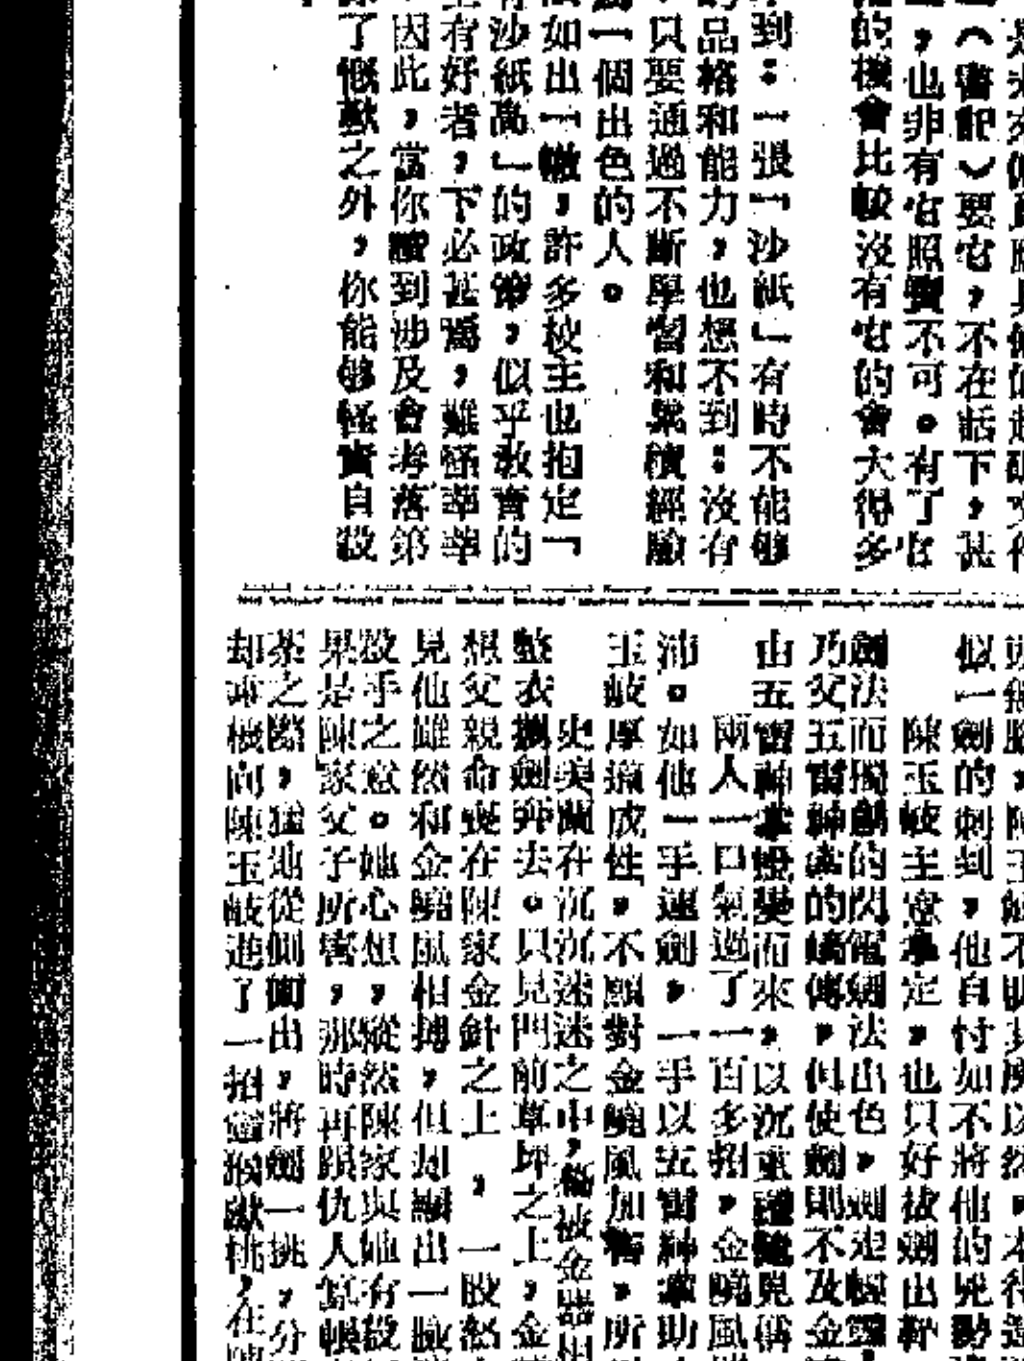 ，也非有它照賣不可。有了它
（書記）要它，不在話下，甚
的機會比較沒有它的會大得多
到：一張「沙紙」有時不能够
的品格和能力，也想不到：沒有
只要通過不斷學習和累積經驗
一個出色的人。
如出一轍，許多校主也抱定「
沙紙高」的政策，似乎教育的
有好者，下必甚焉，難怪莘莘
因此，當你讀到涉及會考落第
了慨歎之外，你能够怪責自殺
似一劍的刺到，他自忖如不將他的
陳玉岐主意拿定，也只好拔劍出鞘
劍法而獨創的閃電劍法出色，劍走輕靈
乃父五雷神掌的嫡傳，但使劍則不及金
由五雷神掌蛻變而來，以沉重穩健見稱
兩人一口氣過了一百多招，金曉風
沛。如他一手運劍，一手以五雷神掌助
玉岐厚道成性，不願對金曉風加害，所
史美蘭在沉沉迷迷之中，被金器
整衣攜劍奔去。只見門前草坪之上，金
想父親命喪在陳家金針之上，一股怒
見他雖然和金曉風相搏，但却顯出一臉
殺手之意。她心想，縱然陳家與她有殺
果是陳家父子所害，那時再跟仇人算帳
茶之際，猛地從側面出，將劍一挑，分
却向陳玉岐進了一招靈猴獻桃，在